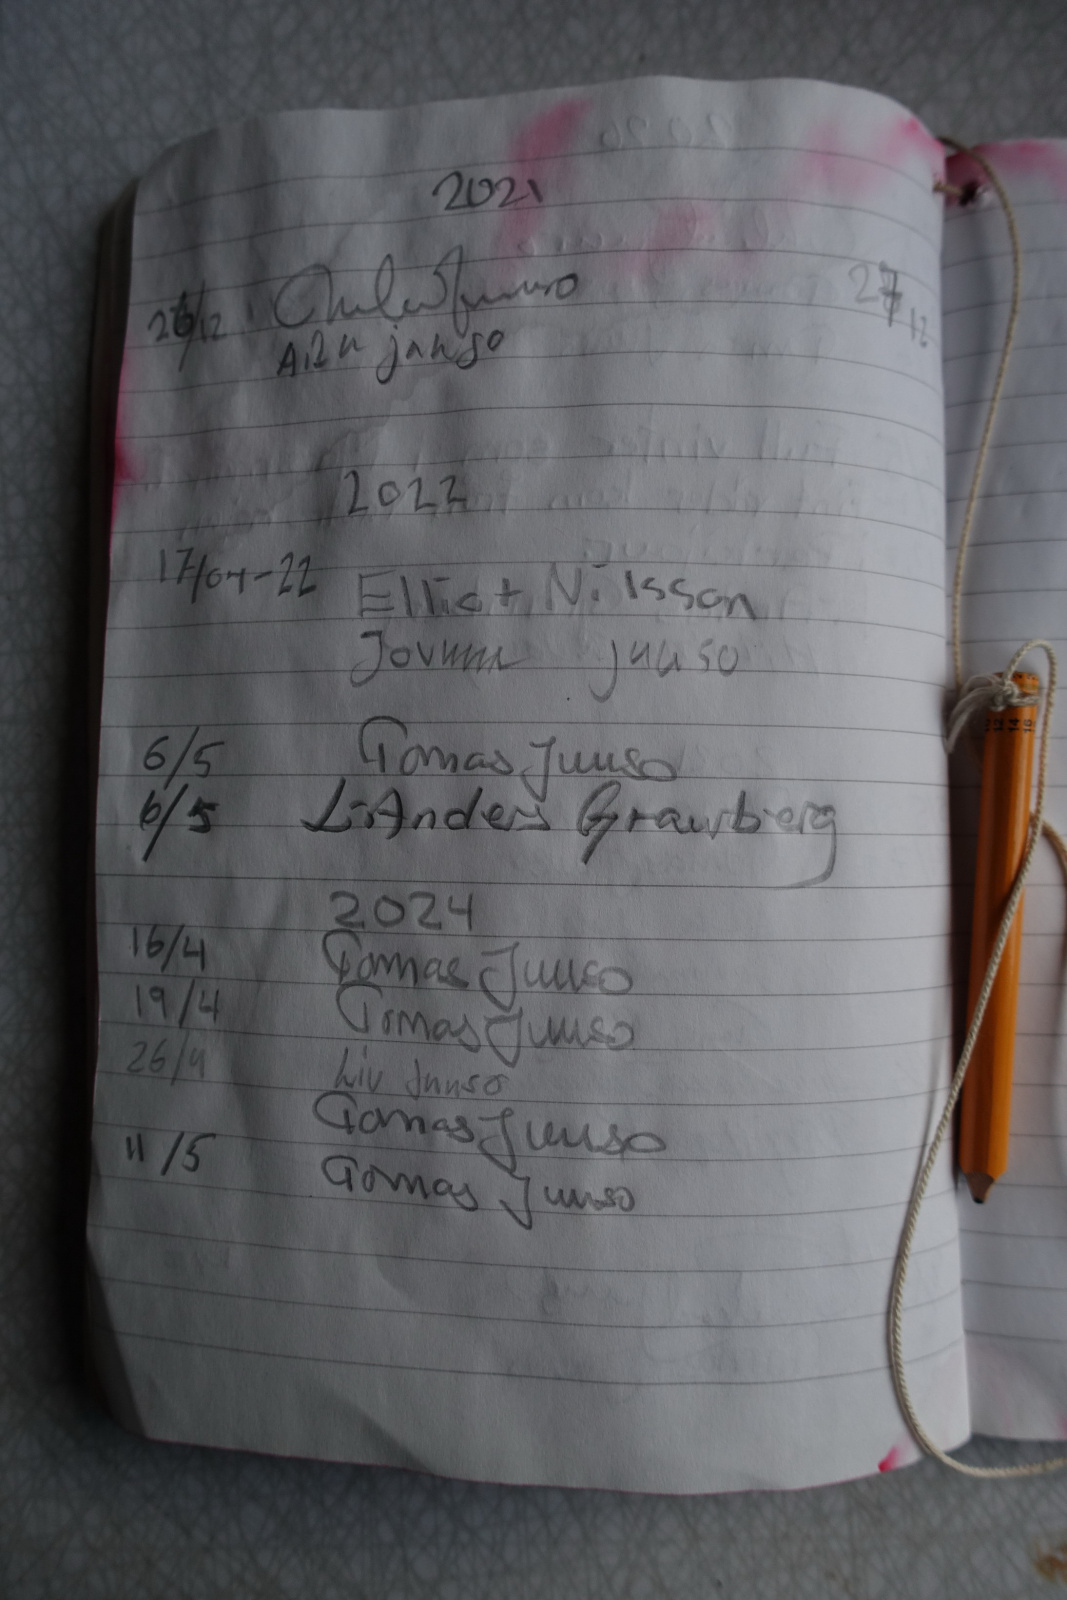 2021
26/12 Juuso 27/12
juuso
2022
17/04-22 Elliot Nilsson
juuso
6/5 Tomas Juuso
6/5 L-Anders
2024
16/4 Tomas Juuso
19/4 Tomas Juuso
26/4 Liv Juuso
Tomas Juuso
11/5 Tomas Juuso